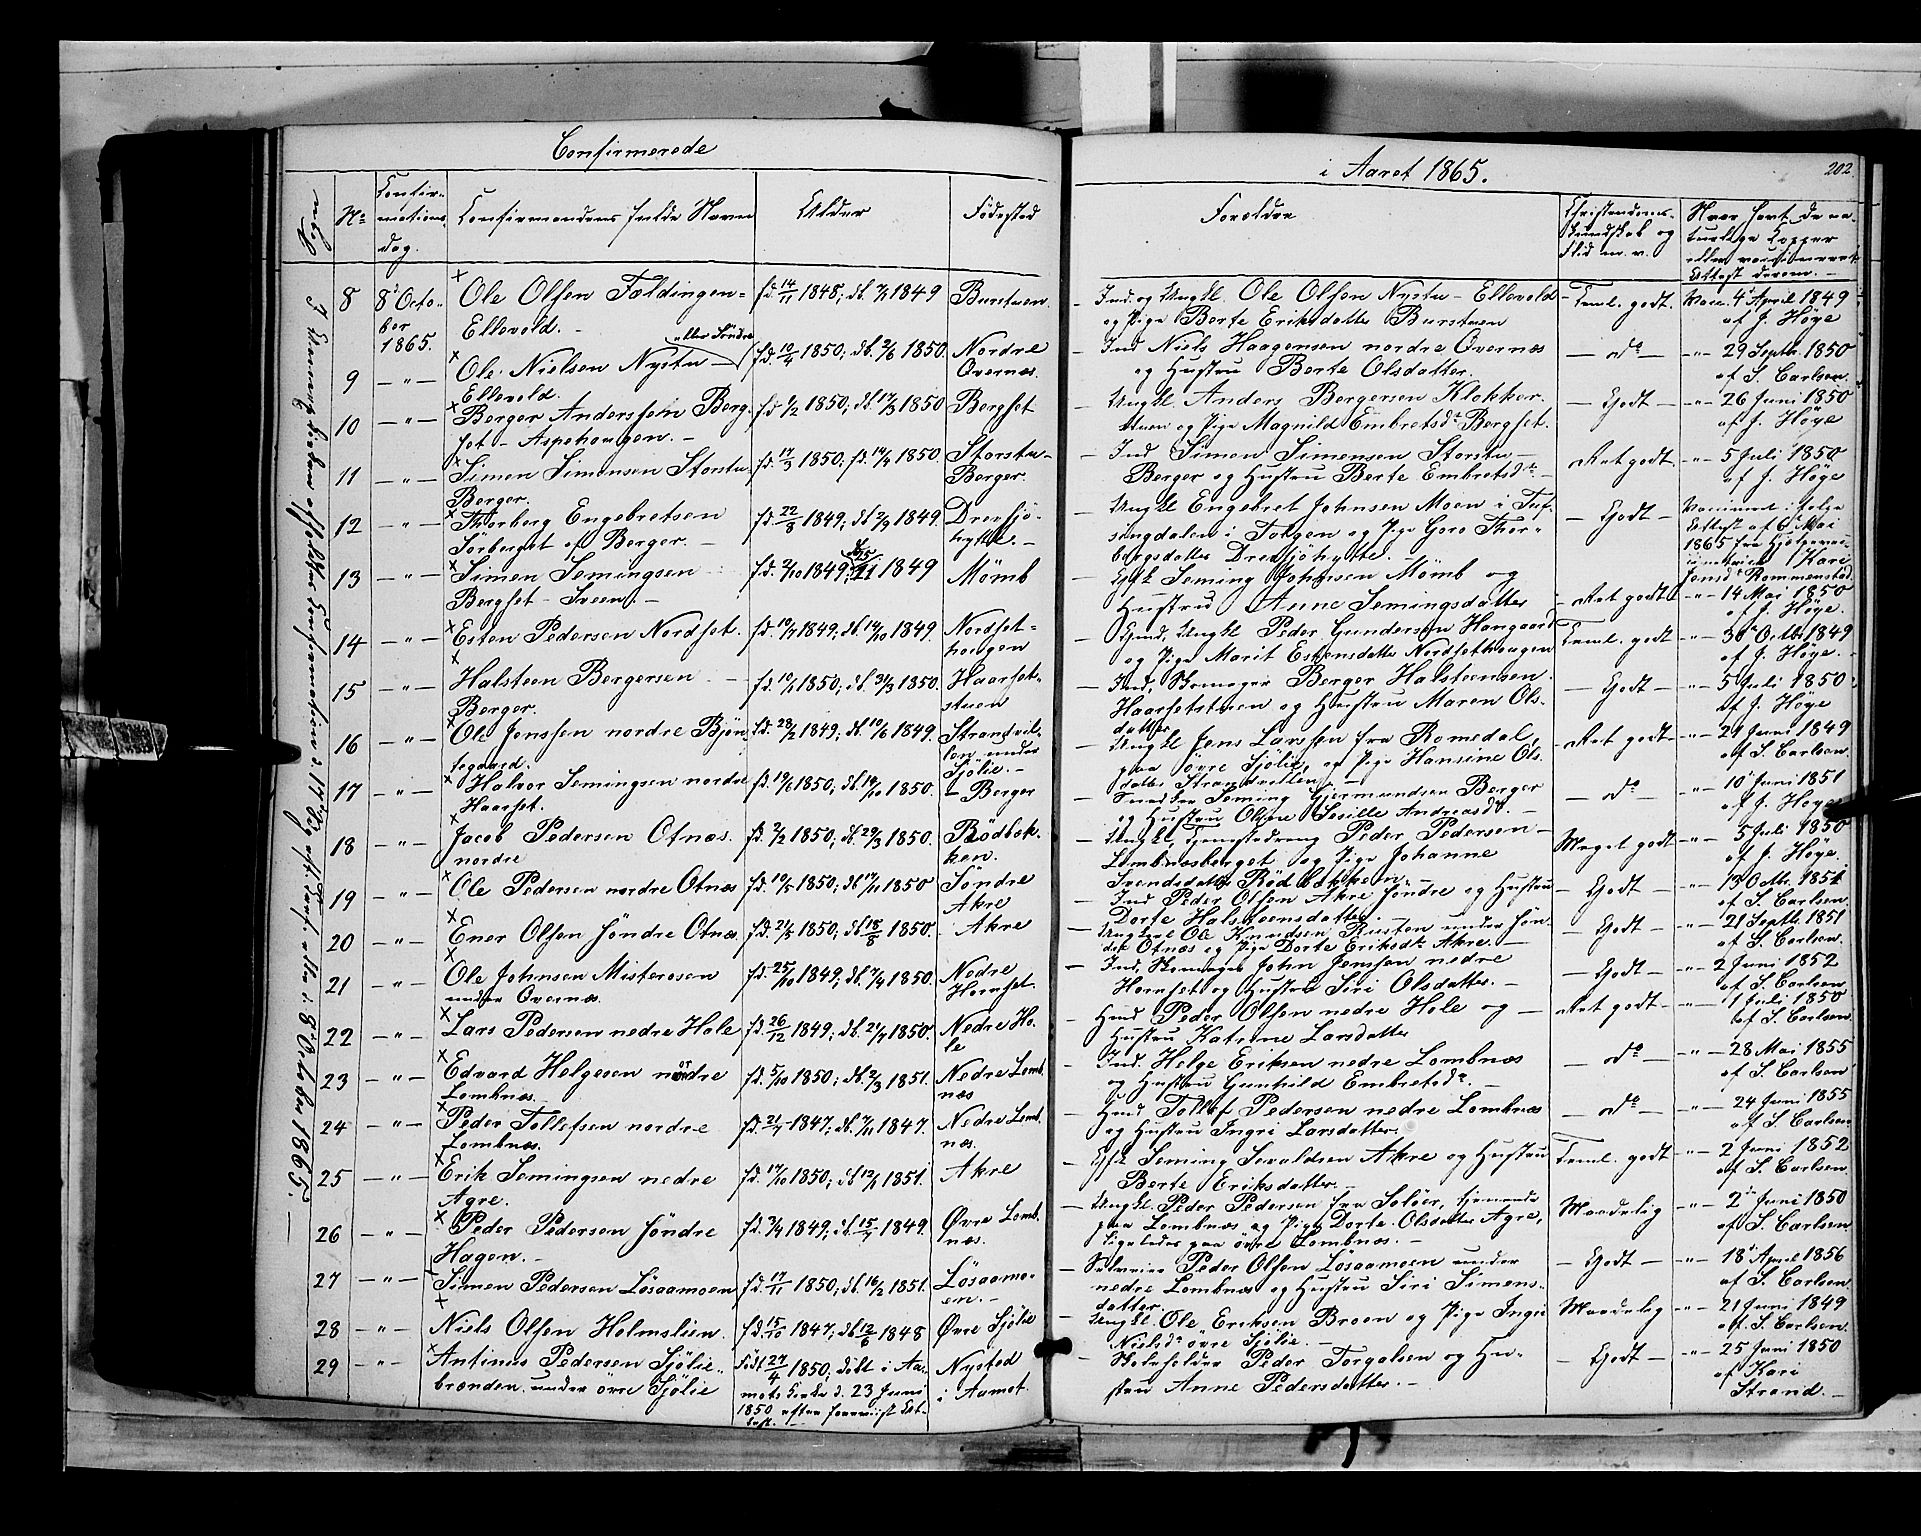 Confirmerede
i Aaret 1865.
202
No
Confir-
mations
dag.
Confirmandens fulde Navn
Alder
Fødested
Forældre
Christendoms-
kundskab og
Flid m. v.
Hvor havt de na-
turlige Kopper
eller vaccineret
Attest derom. -
8
8d Octo-
ber
1865.
Ole Olsen Foldingen-
Ellevold. -
fd. 14/11 1848; db. 7/1 1849
Burstuen.
Ind. og Ungkl. Ole Olsen Nystu - Ellevold
og Pige Berte Eriksdatter Burstuen
Teml. godt.
Vacc. 4d April 1849
af J. Høye
9
- " -
Ole Nielsen Nystu -
eller Søndre
Ellevold.
fd. 10/4 1850; db. 2/6 1850.
Nordre
Øvernæs.
Ind Niels Haagensen nordre Øvernæs
og Hustru Berte Olsdatter.
- do -
-"- 29 Septbr. 1850
af S. Carlsen.
10
- " -
Berger Anderssen Berg-
set - Aspehaugen. -
fd 6/2 1850; db. 17/3 1850
Bergset
Ungkl Anders Bergersen Klokker-
stuen og Pige Magnild Embretsdr Bergset.
- Godt -
-"- 26 Juni 1850
af J. Høye
11
- " -
Simen Simensen Storstu-
Berger.
fd. 17/3 1850; fd. 14/4 1850.
Storstu-
Berger.
Ind Simen Simensen Storstu-
Berger og Hustru Berte Embretsdr -
Ret godt
-"- 5 Juli 1850
af J. Høye
12
- " -
Thorberg Engebretsen
Sørberget af Berger. -
fd. 22/8 1849; db 2/9 1849.
Drevsjö-
hytte. -
Ungkl Engebret Johnsen Moen i Tuf-
singdalen i Tolgen og Pige Goro Thor-
bergsdatter Drevsjöhytte.
- Godt -
Vaccineret i følge
Attest af 6te Mai
1865 fra Hjelpevac-
cinatrice Kari
Jensdr Rommenstad
13
- " -
Simen Semingsen
Bergset - Sveen. -
fd. 2/10 1849; 21 1849
Mømb
Gfkl Seming Johnsen Mømb og
Hustru Anne Semingsdatter
- Ret godt
-"- 14 Mai 1850
af J. Høye.
14
- " -
Esten Pedersen Nordset.
fd. 10/9 1849; db. 14/10 1849.
Nordset-
haugen
Gmd, Ungkl Peder Gundersen Haugaard
og Pige Marit Estensdatter Nordsethaugen
Teml. godt
-"- 30 Octbr 1849
af J. Høye. -
15
- " -
Halsteen Bergersen -
Berger.
fd. 10/1 1850; db. 31/3 1850.
Haarset-
stuen
Ind, Skomager Berger Halsteensen
Haarsetstuen og Hustru Maren Ols-
datter.
- Godt -
-"- 5 Juli 1850
af J. Høye
16
- " -
Ole Jenssen nordre Bjøn-
tegaard.
fd. 28/2 1849; db. 10/6 1849.
Strandvil-
len under
Sjölie. -
Ungkl Jens Larssen fra Romedal,
paa øvre Sjölie, og Pige Hansine Ols-
datter Strandvillen. -
- Ret godt -
-"- 21 Juni 1849
af S. Carlsen.
17
- " -
Halvor Semingsen nordre
Haarset.
fd. 19/6 1850; db. 14/10 1850.
- Berger
Snedker Seming Gjermundsen Berger
og Hustru Oline Sesille Andreasdr. -
- do -
-"- 10 Juni 1851
af J. Høye
18
- " -
Jacob Pedersen Otnæs.
nordre
fd. 2/2 1850; db. 29/3 1850.
Rødbak-
ken.
Ungkl, Tjenestedreng Peder Pedersen -
Lombnæsberget og Pige Johanne
Svendsdatter Rødbakken -
Meget godt
-"- 5 Juli 1850
af J. Høye
19
- " -
Ole Pedersen nordre Otnæs
fd. 19/5 1850; db 17/11 1850
Søndre
Akre
Ind Peder Olsen Akre søndre og Hustru
Dorte Halsteensdatter. -
- Godt -
-"- 13 Octbr. 1851
af S. Carlsen.
20
- " -
Ener Olsen söndre Otnæs
fd. 21/5 1850; db 18/8 1850.
Akre
Ungkarl Ole Knudsen Rusten under søn-
dre Otnæs og Pige Dorte Eriksdr Akre. -
- Godt -
-"- 21 Septbr 1851
af S. Carlsen.
21
- " -
Ole Johnsen Misterosen
under Øvernæs.
fd. 25/10 1849; db. 7/4 1850.
Nedre
Hornset.
Ind, Skomager John Jenssen nedre
Hornset og Hustru Siri Olsdatter. -
- Godt -
-"- 2 Juni 1852
af S. Carlsen
22
- " -
Lars Pedersen nedre Hole
fd. 26/12 1849; db. 21/4 1850.
Nedre Ho-
le
Hmd Peder Olsen nedre Hole og -
Hustru Katrine Larsdatter
Ret godt -
-"- 1 Juli 1850
af S. Carlsen.
23
- " -
Edvard Helgesen nordre
Lombnæs. -
fd. 5/10 1850; db. 2/3 1851.
Nedre Lomb-
næs
Ind. Helge Eriksen nedre Lombnæs
og Hustru Gunhild Embretsdr. -
- do -
-"- 28 Mai 1855
af S. Carlsen
24
- " -
Peder Tollefsen nordre
Lombnæs.
fd. 21/7 1847; db. 7/11 1847.
Nedre Lomb-
næs.
Hmd Tollef Pedersen nedre Lombnæs
og Hustru Ingri Larsdatter.
- do -
-"- 24 Juni 1855
af S. Carlsen
25
- " -
Erik Semingsen nedre
Agre.
fd. 17/10 1850; db 12/1 1851.
Akre
Gfkl Seming Sevaldsen Akre og Hustru
Berte Eriksdatter. -
Teml. godt
-"- 2 Juni 1852
af S. Carlsen.
26
- " -
Peder Pedersen söndre
Hagen. -
fd. 3/4 1849; db. 15/7 1849.
Øvre Lomb-
næs.
Ungkl. Peder Pedersen fra Soløer, tjenende
paa Lombnæs og Pige Dorte Olsdatter Agre,
ligeledes paa øvre Lombnæs. -
Maadelig
-"- 2d Juni 1850
af S. Carlsen
27
- " -
Simen Pedersen Løsaamoen
fd. 17/11 1850; db. 16/2 1851.
Løsaamo-
en. -
Selveier Peder Olsen Løsaamoen under
nedre Lombnæs og Hustru Siri Simens-
datter.
- Godt -
-"- 18d April 1856
af S. Carlsen
28
- " -
Niels Olsen Holmslien.
fd. 15/10 1847; db 12/6 1848
Øvre Sjölie
Ungkl. Ole Eriksen Broen og Pige Ingri
Nielsdr øvre Sjölie. -
Maadelig
-"- 21 Juni 1849
af S. Carlsen.
29
- " -
Antinus Pedersen Sjölie-
brænden under øvre Sjölie
Født 27/4 1850; døbt i Aa-
mots Kirke d. 23 Juni
1850 efter forevist At-
test. -
Nysted
i Aamot.
Peder Torgalsen og Hu-
stru Anne Pedersdatter. -
- Godt -
-"- 25 Juni 1850
af Kari
Strand. -